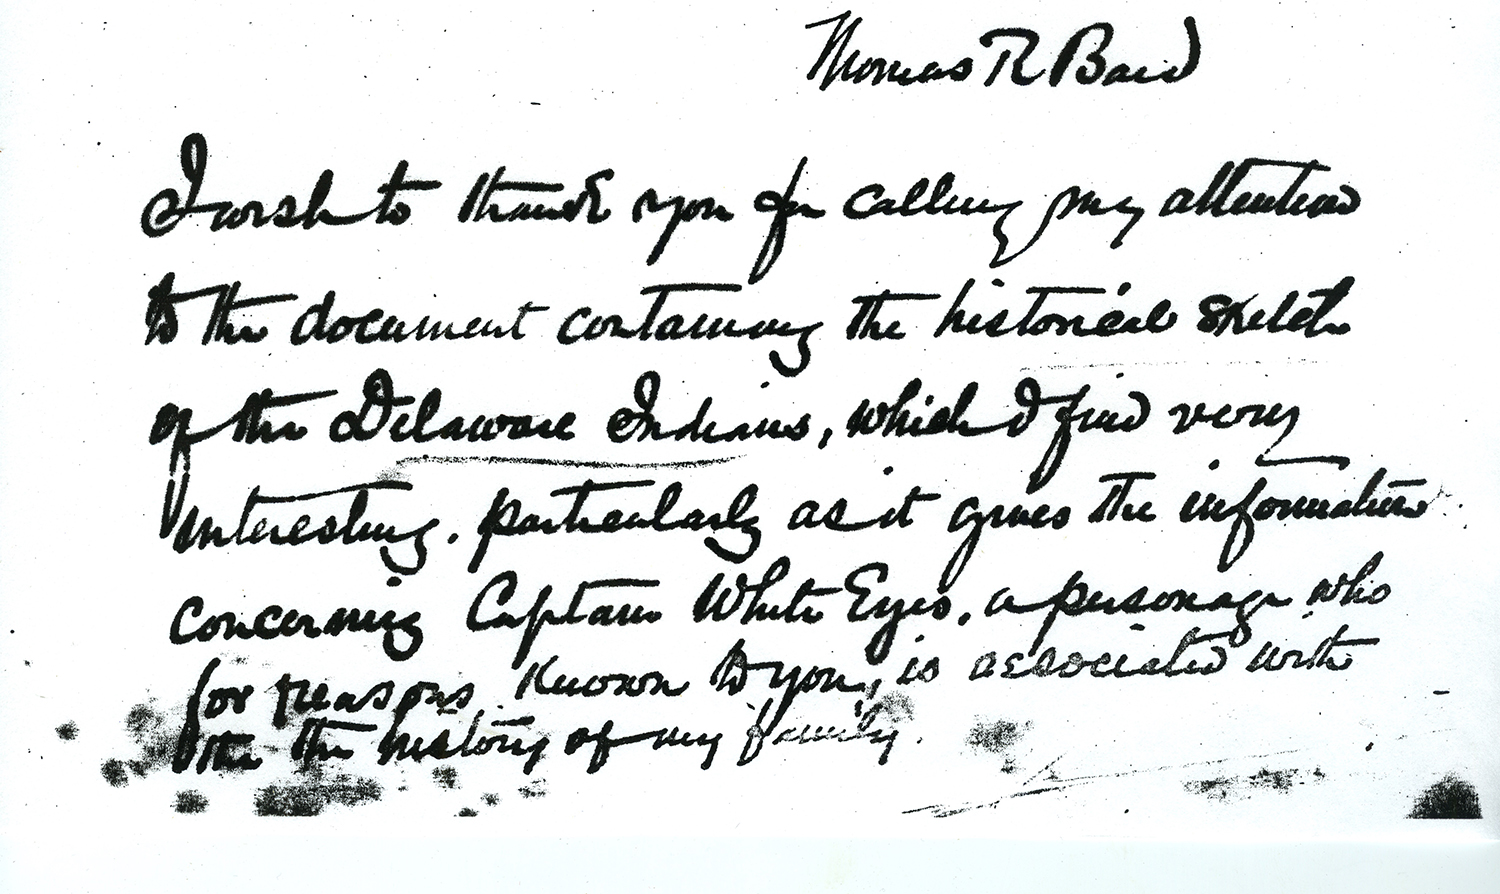 Thomas R Bard
I wish to thank you for calling my attention
to the document containing the historical sketch
of the Delaware Indians, which I find very
interesting. particularly as it gives the information
concerning Captain White Eyes, a personage who
for reasons known to you, is associated with
the the history of my family.